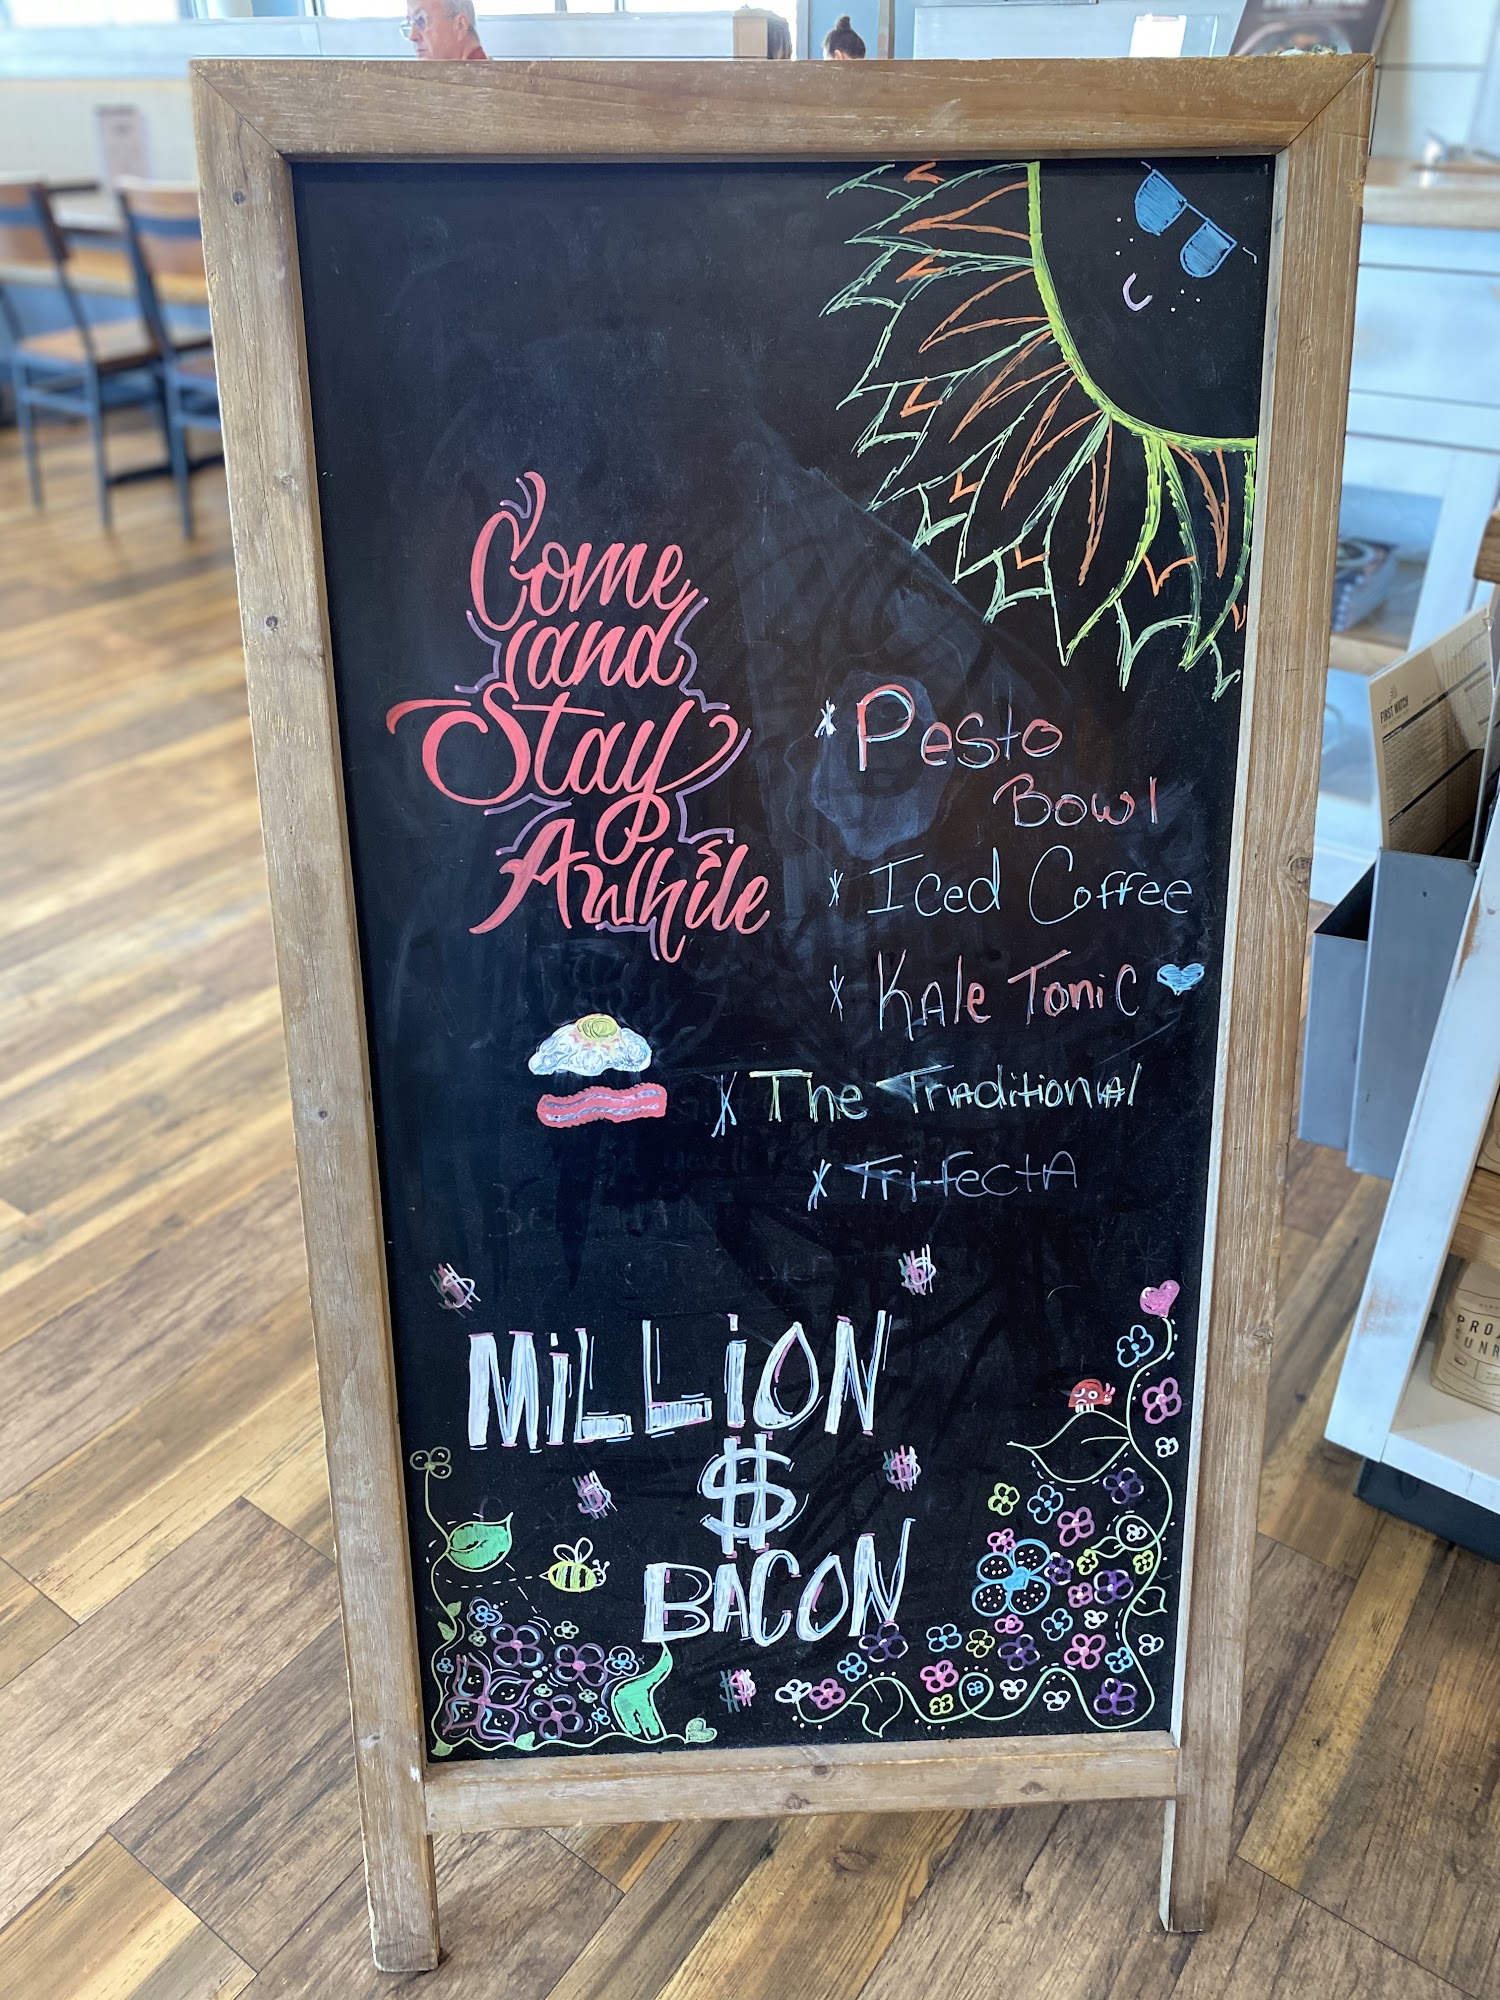 Come
and
Stay
Awhile
* Pesto
Bowl
* Iced Coffee
* Kale Tonic
* The Traditional
* Trifecta
MiLLiON
$
BACON
FIRST WATCH